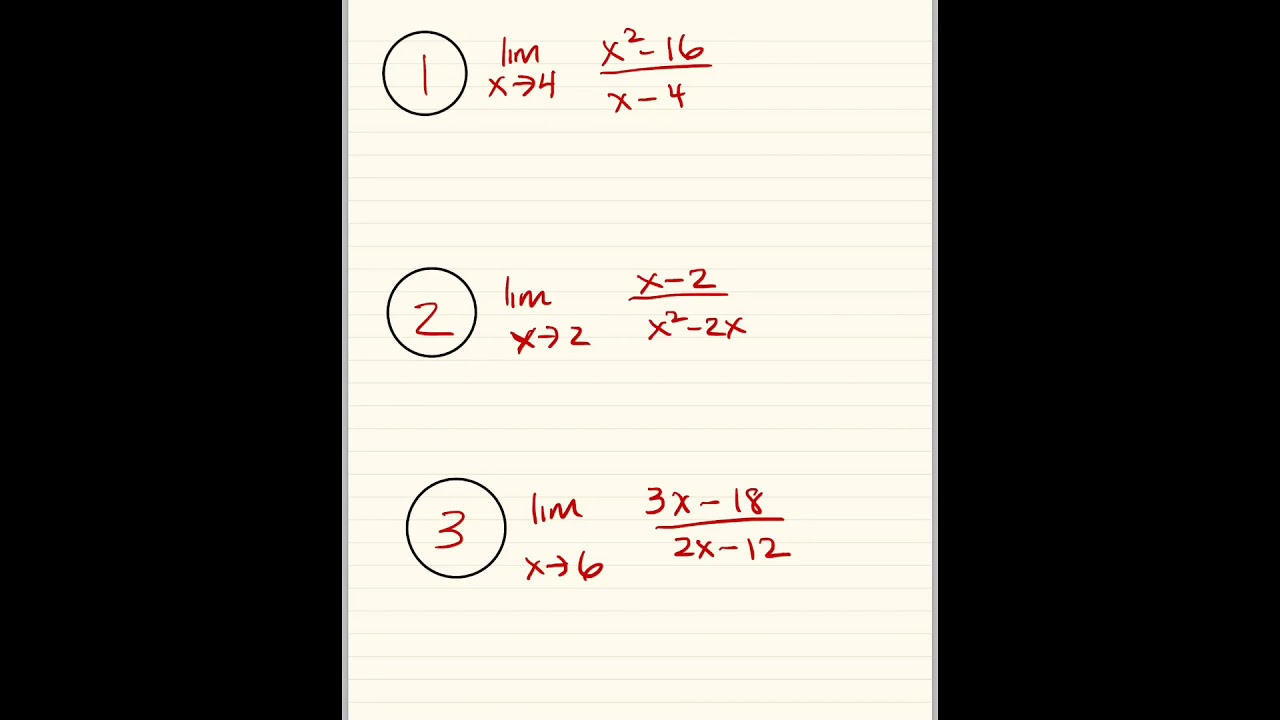 1 lim x→4 x²-16
x-4
2 lim x→2 x-2
x²-2x
3 lim x→6 3x-18
2x-12